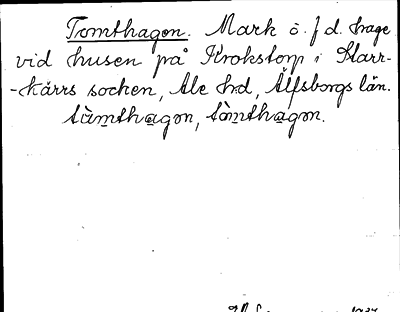 Tomthagen. Mark o. f d. hage
vid husen på Krokstorp i Starr-
-kärrs socken, Ale hd, Älfsborgs län.
tòmthagən, tòmthagən.